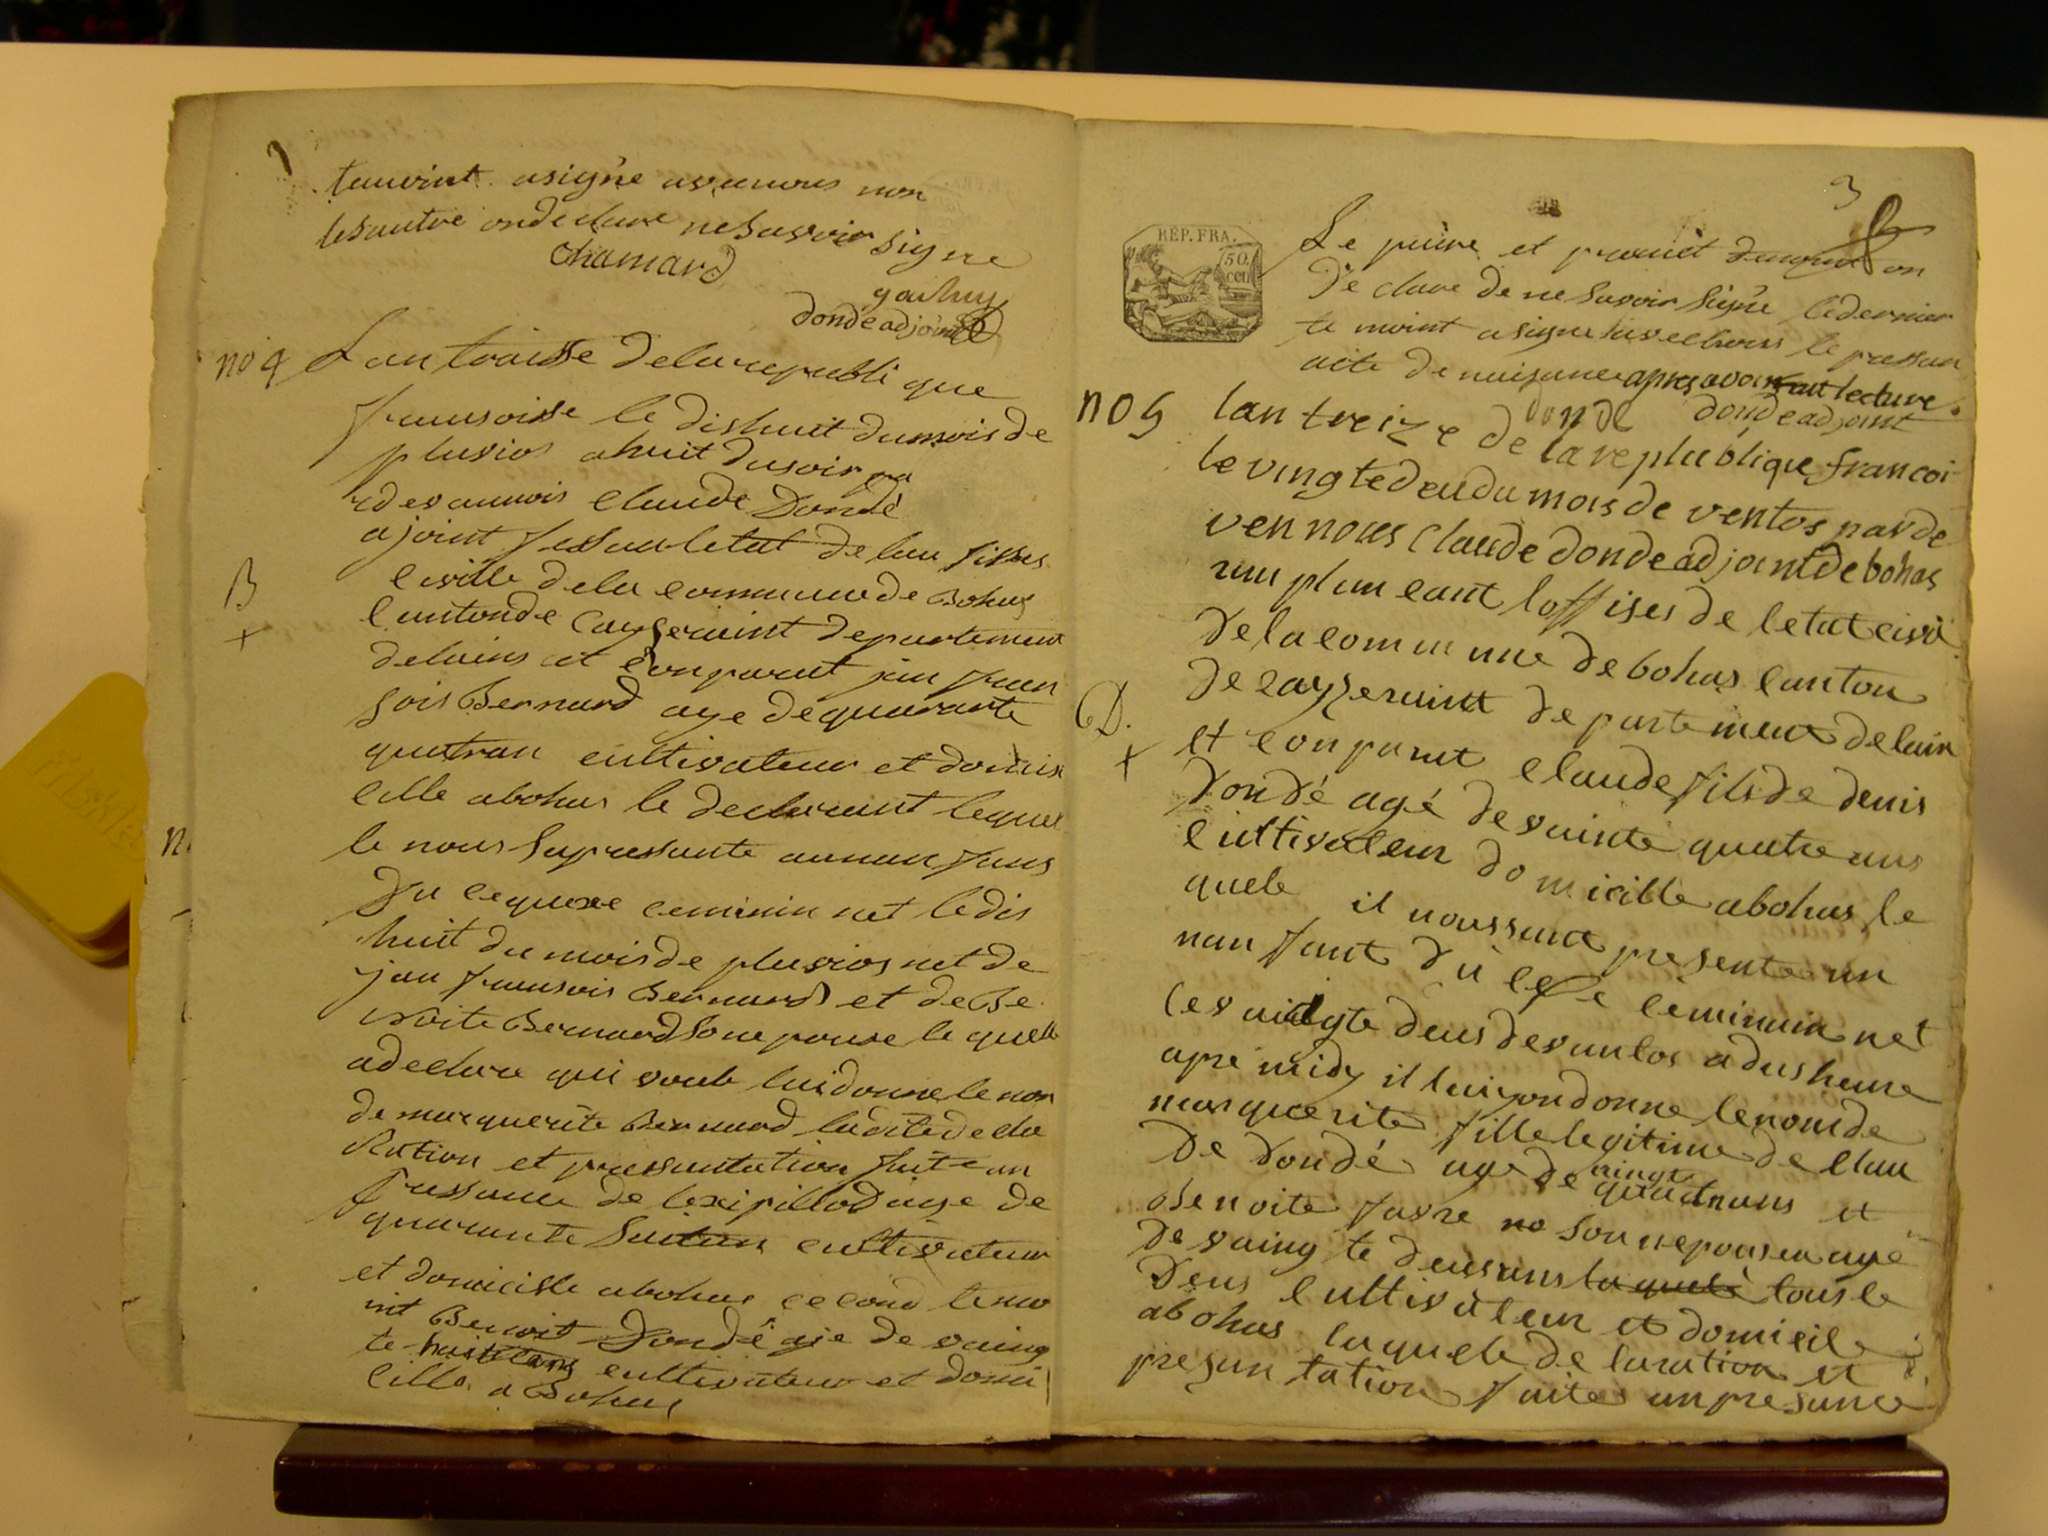 temoint asigne avecnous non
lesautre onde clare nesavoir signe
Chamard
donde adjoint
no 4 Lan traisse delarepubli que
fransoisse le dishuit dumois de
pluvios ahuit dusoir pa
rdevannois Claude Dondé
ajoint fessanletat de lau fisses
civille dela commune de Bohas
Cantonde Cayseraint departement
delains et Conparut jan fran
sois Bernard aye de quarante
quatran cultivateur et domis
cille abohas le declarant lequel
le nous Sapressante unnan fans
Du cequxe ceminin net ledis
huit du mois de pluvios net de
jan fransois Bernard et de Be
noite Bernard son epouse le quelle
adeclare qui voule luidonne le non
de marguerite Bernard ladite de cla
Ration et pressantation faite an
pressance de aye de
quarante cultivateur
et domicille abohas cecond temo
int Benoit Dondé aje de vaing
te huit ans cultivateur et domi
cille a Bohas
B
+
3
RÉP. FRA.
50.
cen
Le peire et premiet temoint on
De clare de ne savoir signe ledernier
te moint a signe avec nous le pressan
acte de naisance apres avoir fait lecture.
donde donde adjoint
no 5 lan treize de la republique francoi
le vingtedeudu mois de ventos par de
ven nous Claude donde adjoint de bohas
ranplan cant loffises de letat civil
De la comm une de bohas canton
De cayzeraint departement delain
CD.
+
et conparut claude fils de denis
Dondé agé devainte quatre ans
cultivateur domicille abohas le
quele il noussant presente un
nan fant du cexe ceminin net
les vaingte deus devantos a deus heure
apre midy il luiyon donne lenomde
marguerite fille legitime de Clau
De Dondé age de vingt quatrans et
Benoite favre no son nepouse a age
De vaing te deusans laquele tous le
Deus cultivateur et domicile
abohas laquele de laration et
presan tation faite anpresance